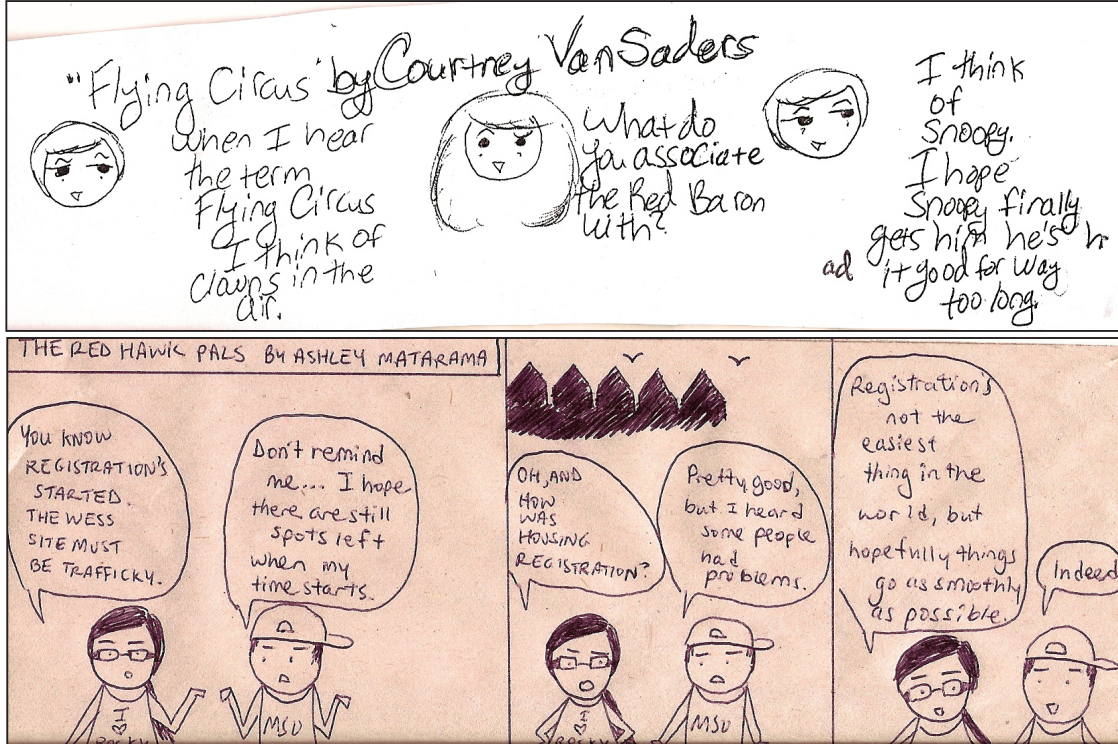 "Flying Circus" by Courtney Van Saders
When I hear
the term
Flying Circus
I think of
clowns in the
air.
What do
you associate
the Red Baron
with?
I think
of
Snoopy.
I hope
Snoopy finally
gets him he's h
ad it good for way
too long.
THE RED HAWK PALS BY ASHLEY MATARAMA
YOU KNOW
REGISTRATION'S
STARTED.
THE WESS
SITE MUST
BE TRAFFICKY.
Don't remind
me... I hope
there are still
spots left
when my
time starts.
ROCKY
MSU
OH, AND
HOW
WAS
HOUSING
REGISTRATION?
Pretty good,
but I heard
some people
had
problems.
ROCKY
MSU
Registration's
not the
easiest
thing in the
world, but
hopefully things
go as smoothly
as possible.
Indeed